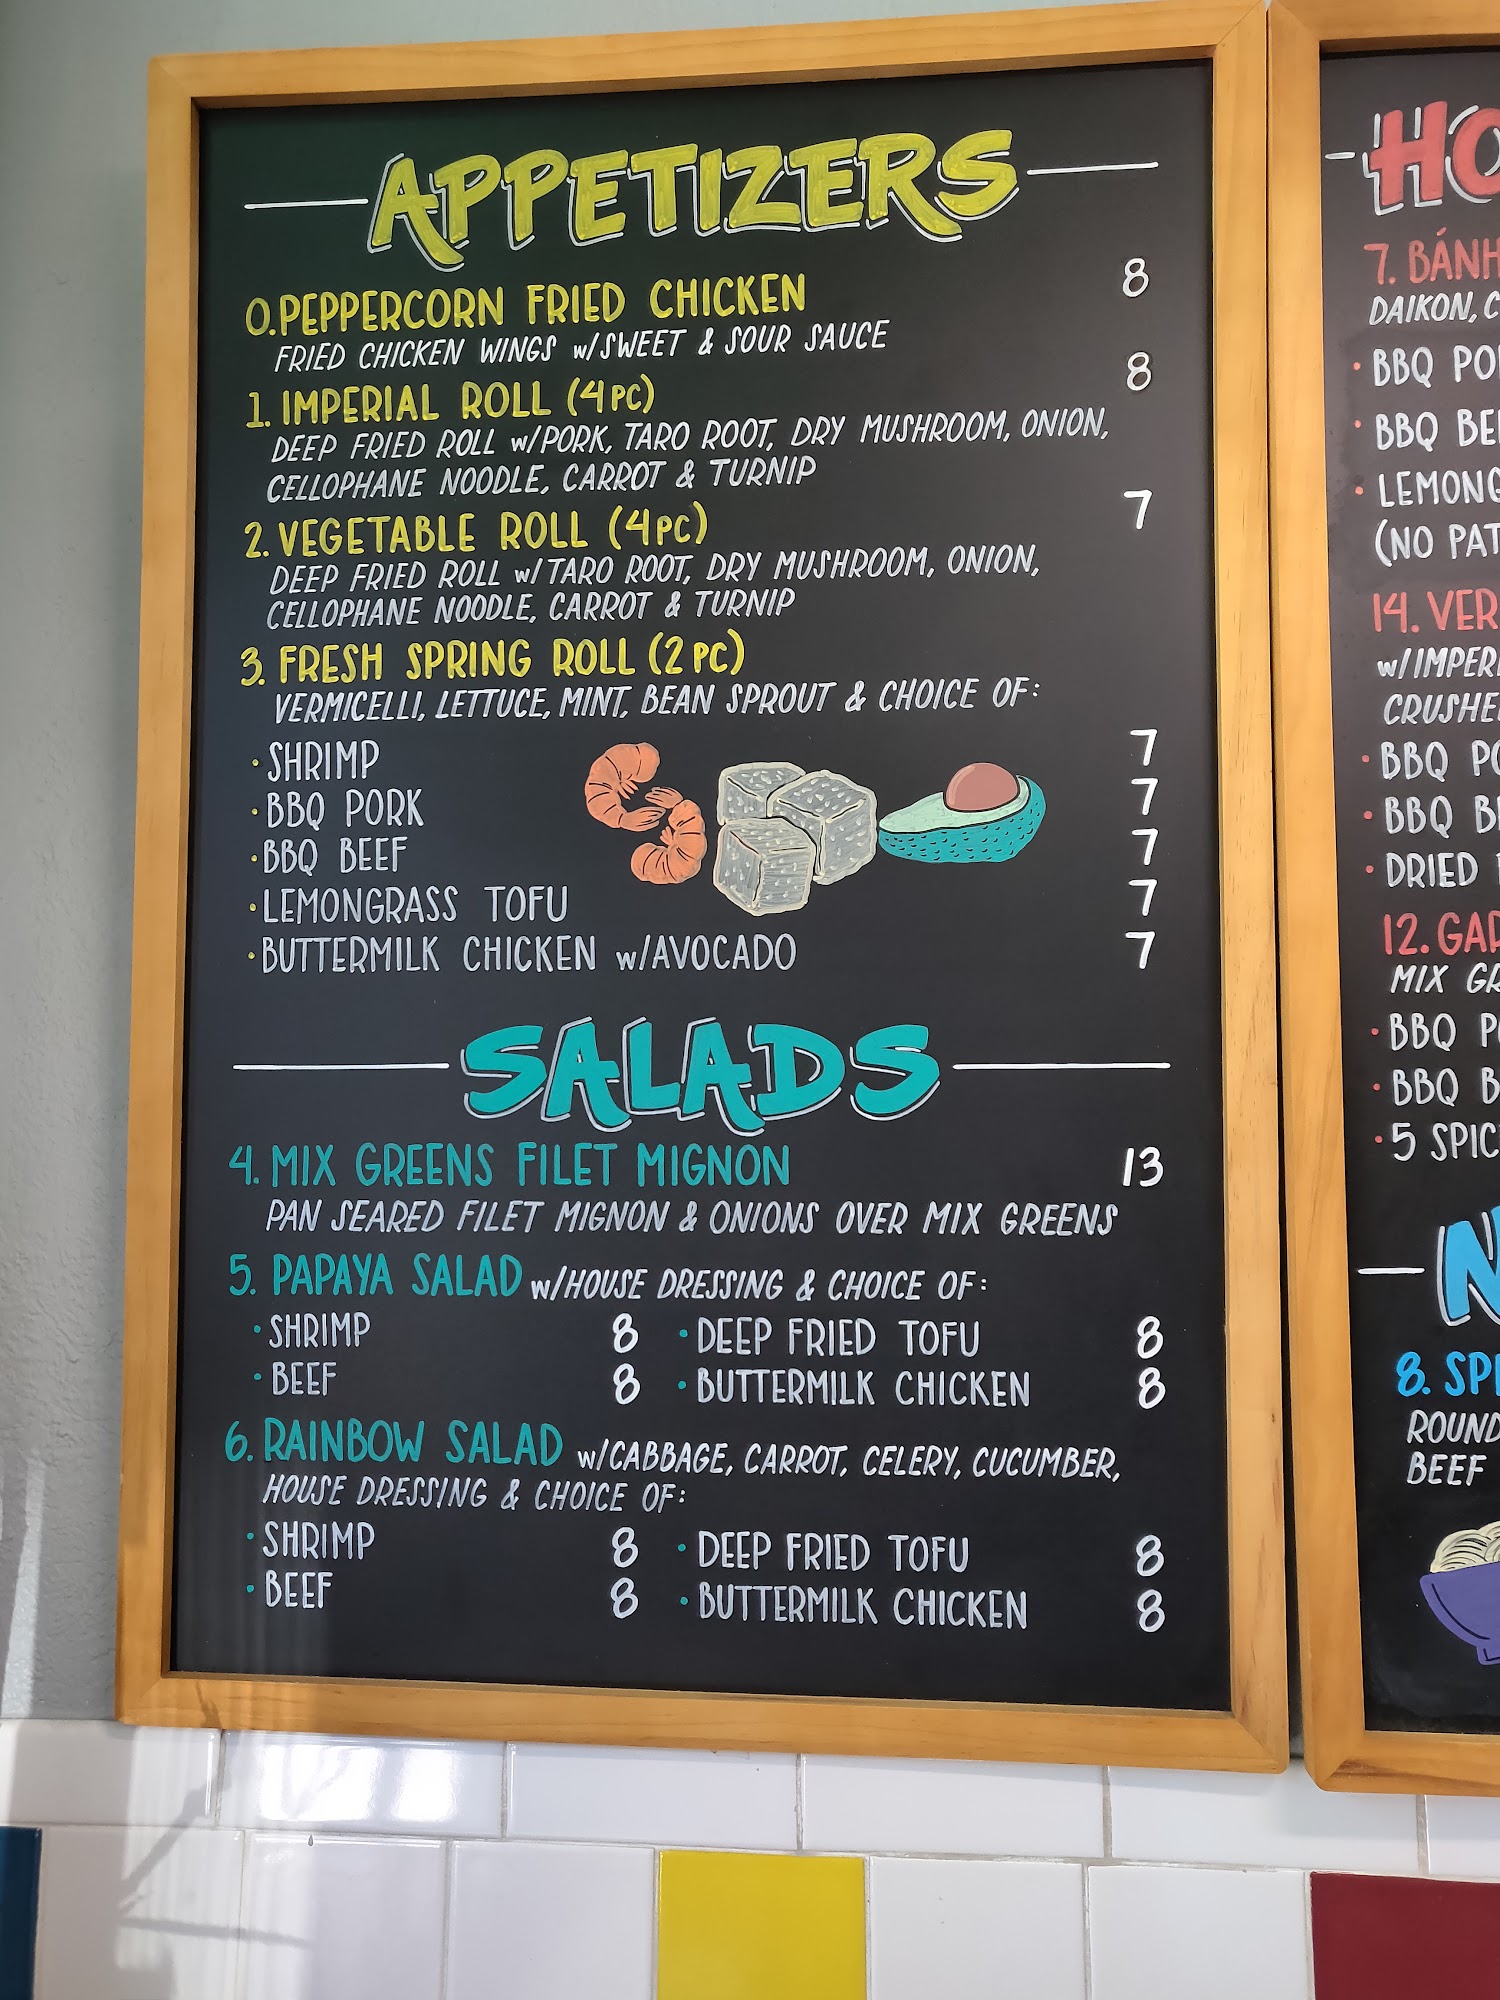 APPETIZERS
0. PEPPERCORN FRIED CHICKEN 8
FRIED CHICKEN WINGS w/SWEET & SOUR SAUCE
1. IMPERIAL ROLL (4PC) 8
DEEP FRIED ROLL w/PORK, TARO ROOT, DRY MUSHROOM, ONION,
CELLOPHANE NOODLE, CARROT & TURNIP
2. VEGETABLE ROLL (4PC) 7
DEEP FRIED ROLL w/TARO ROOT, DRY MUSHROOM, ONION,
CELLOPHANE NOODLE, CARROT & TURNIP
3. FRESH SPRING ROLL (2PC)
VERMICELLI, LETTUCE, MINT, BEAN SPROUT & CHOICE OF:
·SHRIMP 7
·BBQ PORK 7
·BBQ BEEF 7
·LEMONGRASS TOFU 7
·BUTTERMILK CHICKEN w/AVOCADO 7
SALADS
4. MIX GREENS FILET MIGNON 13
PAN SEARED FILET MIGNON & ONIONS OVER MIX GREENS
5. PAPAYA SALAD w/HOUSE DRESSING & CHOICE OF:
·SHRIMP 8 ·DEEP FRIED TOFU 8
·BEEF 8 ·BUTTERMILK CHICKEN 8
6. RAINBOW SALAD w/CABBAGE, CARROT, CELERY, CUCUMBER,
HOUSE DRESSING & CHOICE OF:
·SHRIMP 8 ·DEEP FRIED TOFU 8
·BEEF 8 ·BUTTERMILK CHICKEN 8
7. BÁNH
DAIKON,
·BBQ
·BBQ
(NO
14.
·BBQ
·BBQ
·DRIED
12.
MIX
·BBQ
·BBQ
·5
8.
BEEF